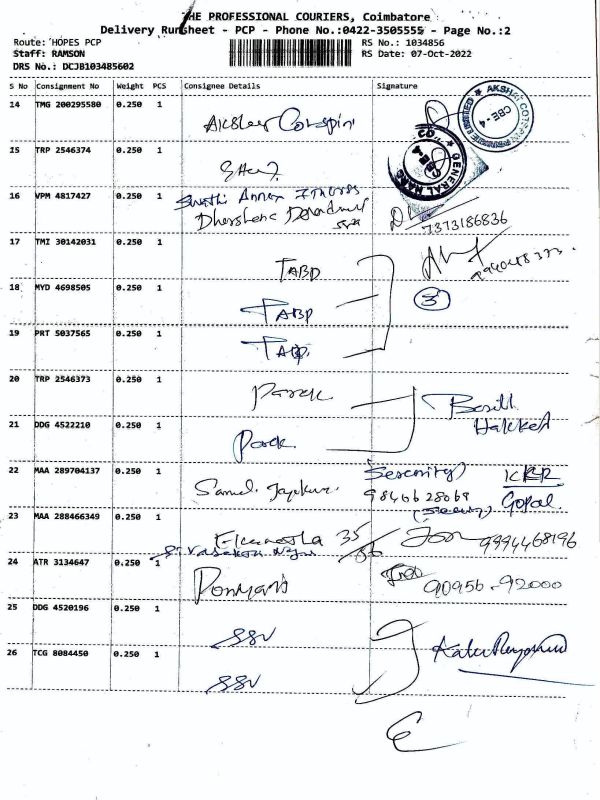 THE PROFESSIONAL COURIERS, Coimbatore
Delivery Runsheet - PCP - Phone No.:0422-3505555 - Page No.:2
Route: HOPES PCP
RS No.: 1034856
Staff: RAMSON
RS Date: 07-Oct-2022
DRS No.: DCJB103485602
S No Consignment No Weight PCS Consignee Details Signature
14 TMG 200295580 0.250 1
AKSHAI COTSPIN PRIVATE LIMITED CBE-4
15 TRP 2546374 0.250 1
16 VPM 4817427 0.250 1
7373186836
17 TMI 30142031 0.250 1 TABP
18 MYD 4698505 0.250 1 TABP 3
19 PRT 5037565 0.250 1 TABP
20 TRP 2546373 0.250 1
21 DDG 4522210 0.250 1
22 MAA 289704137 0.250 1
9846628069 Gopal
23 MAA 288466349 0.250 1 35/36 9994468196
24 ATR 3134647 0.250 1 90956-92000
25 DDG 4520196 0.250 1 SSV
26 TCG 8084450 0.250 1 SSV